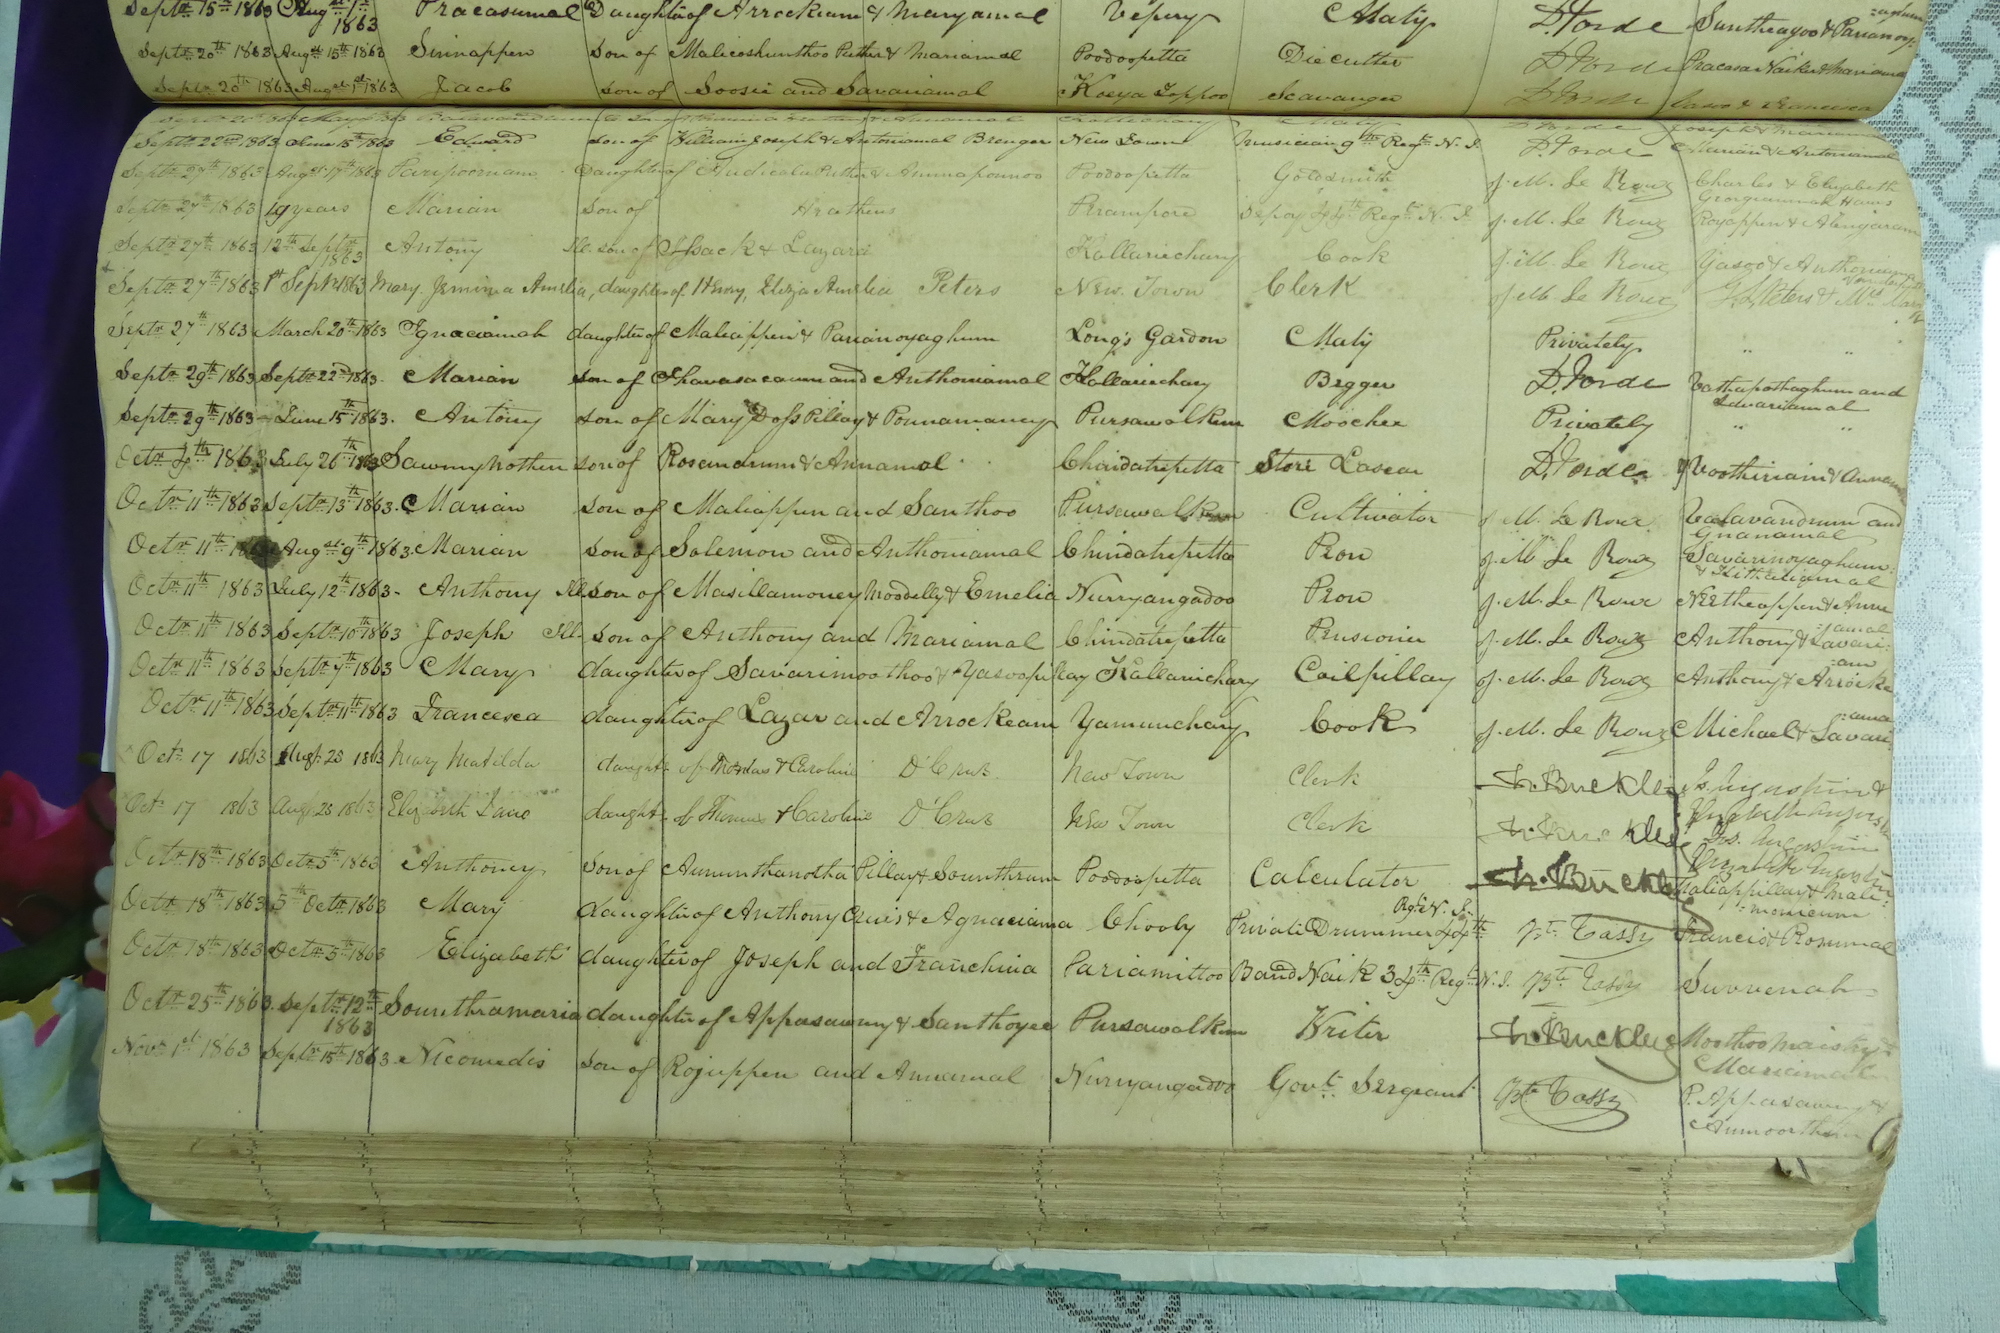 Septr 15th 1863 Augst 1st 1863 Pracasumal Daughter of Arrockium & Maryamal Vepery Maly D. Forde Suntheagoo & Parianoy-aghum
Septr 20th 1863 Augst 15th 1863 Sinnappen son of Malicoshunthoo Puther & Mariamal Poodoopetta Diecutter D. Forde Pracasar Naiker & Mariama
Septr 20th 1863 Augst 1st 1863 Jacob son of Soosie and Savariamal Kosya Toppoo Scavanger D. Forde
Septr 22nd 1863 June 15th 1863 Edward son of William Joseph & Antoniamal Brenger New Town Musician 9th Regt N. I. D. Forde Marian & Antoniamal
Septr 27th 1863 Augst 17th 1863 Paripoornam Daughter of Puther & Annaponnoo Poodoopetta Goldsmith J. M. Le Roux Charles & Elizabeth Georgeammah Hams
Septr 27th 1863 19 years Marian Son of Heathens Perampore Sepoy 44th Regt N. I. J. M. Le Roux Royappen &
Septr 27th 1863 12th Septr 1863 Antony Ill. son of Isack & Lazara Kallariechary Cook J. M. Le Roux Yagoo & Anthoniama
Septr 27th 1863 1st Septr 1863 Mary Jemima Amelia, daughter of Henry, Eliza Amelia Peters New Town Clerk J. M. Le Roux Peters & Mrs
Septr 27th 1863 March 20th 1863 Ignaciamah daughter of Maliappen & Parianoyaghum Long's Gardon Maly Privately " "
Septr 29th 1863 Septr 22nd 1863. Marian son of Thavasacaum and Anthoniamal Kallariechary Begger D. Forde Vathapothaghum and Savariamal
Septr 29th 1863 June 15th 1863. Antony son of Mary Doss Pillay & Ponnamaney Pursawalkum Moochee Privately " "
Octr 4th 1863 July 26th 1863 Sawmynathen son of Rosendrum & Annamal Chindatrepetta Store Lascar D. Forde Voothiriam & Annamal
Octr 11th 1863 Septr 13th 1863. Marian son of Maliappen and Santhoo Pursawalkum Cultivator J. M. Le Roux Valavandrum and Gnanamal
Octr 11th 1863 Augst 9th 1863. Marian son of Solemon and Anthoniamal Chindatrepetta Peon J. M. Le Roux Savarinoyaghum &
Octr 11th 1863 July 12th 1863- Anthony Ill. son of Masillamoney Moodelly & Emelia Nurryangadoo Peon J. M. Le Roux Neetheappen & Anne-jamal
Octr 11th 1863 Septr 10th 1863 Joseph Ill. son of Anthony and Mariamal Chindatrepetta Pensioner J. M. Le Roux Anthony & Savari-am
Octr 11th 1863 Septr 7th 1863 Mary daughter of Savarimoothoo & Yagoopillay Kallariechary Coilpillay J. M. Le Roux Anthony & Arrockeama
Octr 11th 1863 Septr 11th 1863 Francesca daughter of Lazar and Arrockeam Yamunchary Cook J. M. Le Roux Michael & Savari-
Octr 17 1863 Augt 23 1863 Mary Matilda daughtr of Thomas & Caroline D'Cruz New Town Clerk Buckley Js. Augustin &
Octr 17 1863 Augt 23 1863 Elizabeth Jane daughtr of Thomas & Caroline D'Cruz New Town Clerk Buckley Js. Augustin Elizabeth Augustin
Octr 18th 1863 Octr 5th 1863 Anthoney Son of Aununthanatha Pillay & Sounthrum Poodoopetta Calculator Buckley Maliappillay & Mali-moneum
Octr 18th 1863 5th Octr 1863 Mary daughter of Anthony Queis & Agnaciama Chooly Private Drummer 44th Regt N. I. Jn. Bte Tassy Francis & Rosumal
Octr 18th 1863 Octr 5th 1863 Elizabeth daughter of Joseph and Franchina Pariamittoo Band Naik 34th Regt N. I. Bte Tassy Suvvenah
Octr 25th 1863. Septr 12th 1863 Sounthramaria daughter of Appasawmy & Santhoyee Pursawalkum Writer Buckley Moothoo Maistry & Mariamal
Novr 1st 1863 Septr 15th 1863. Nicomedis son of Rojappen and Annamal Nurryangadoo Govt. Sergeant Bte Tassy P. Appasawmy &